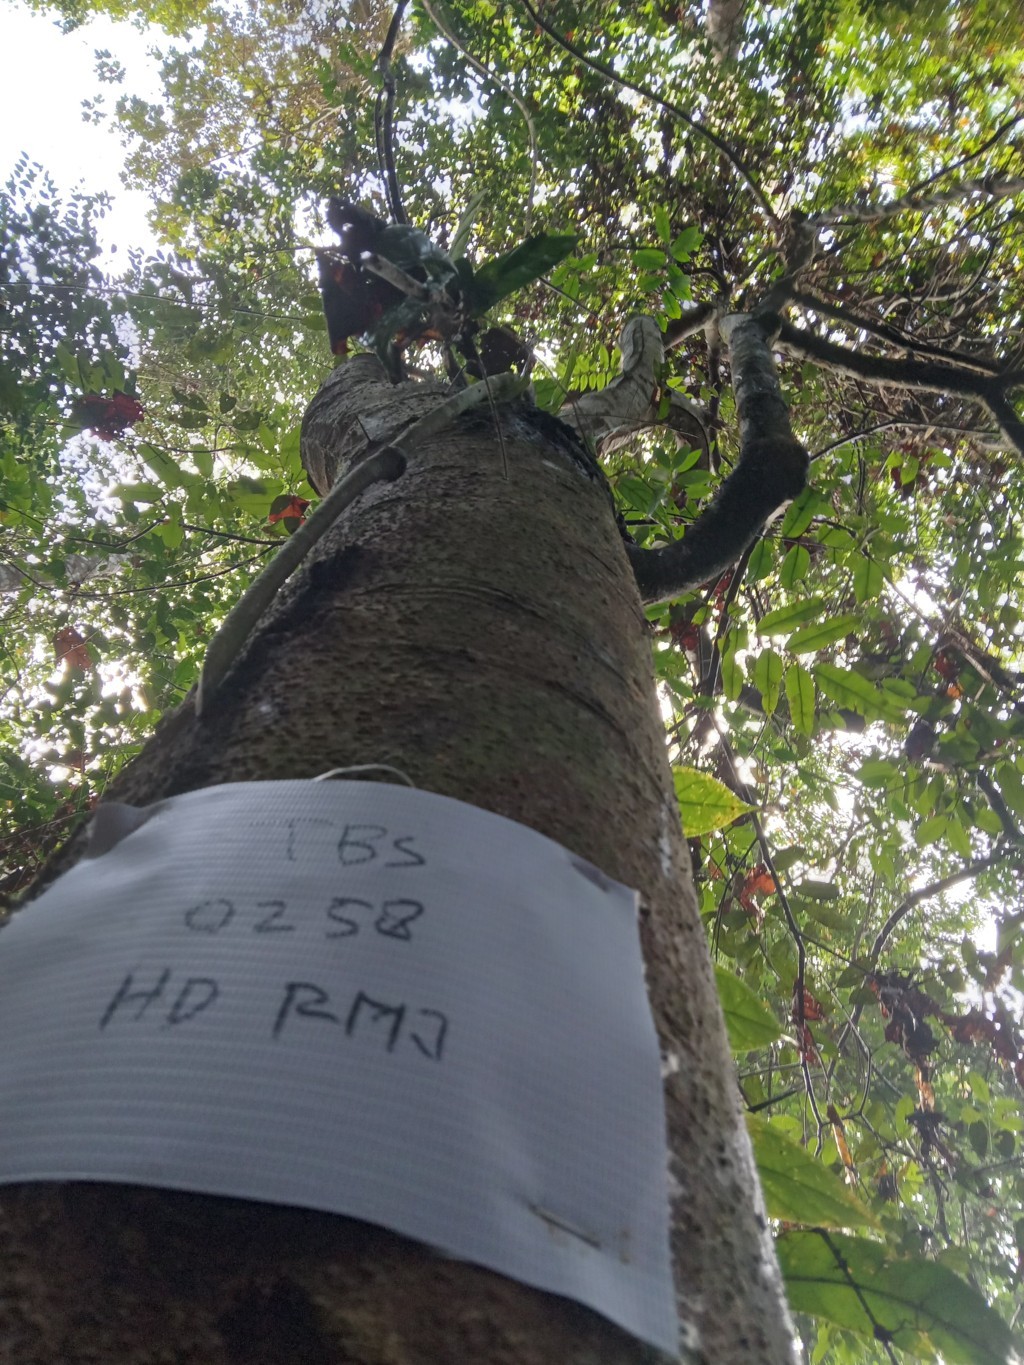 TBS
0258
HD RMJ